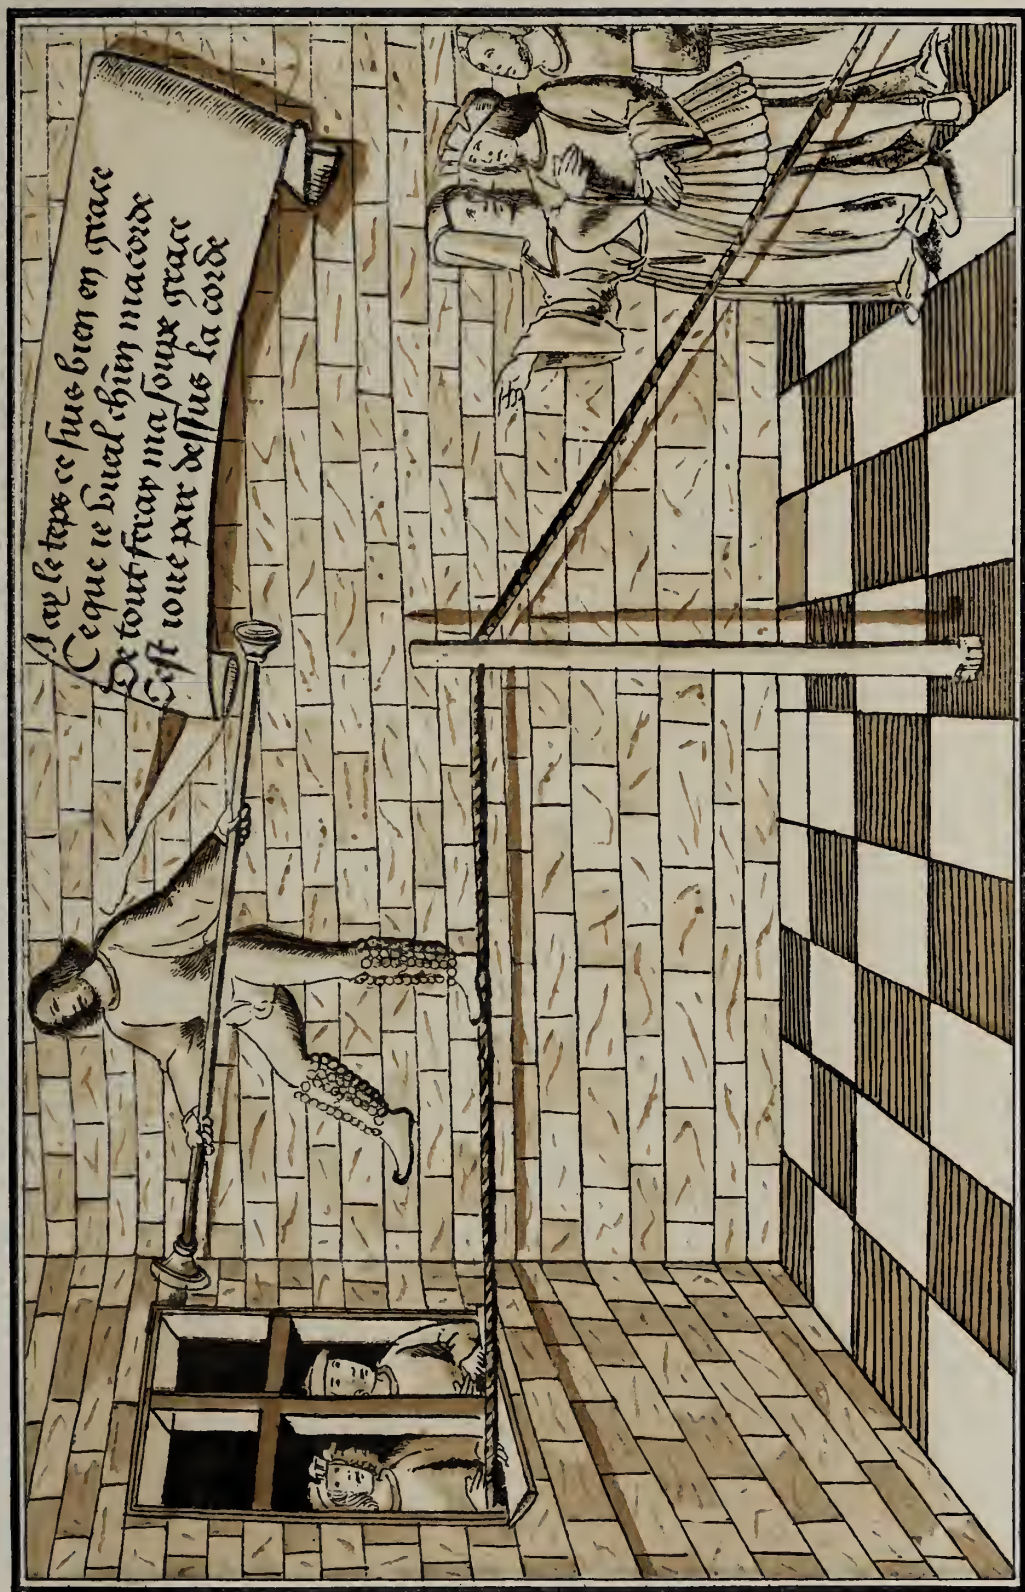 Jay le teps ce suis bien en grace
Ce que ie vueil chun macorde
De tout feray ma soupe grace
Cest ioue par dessus la corde